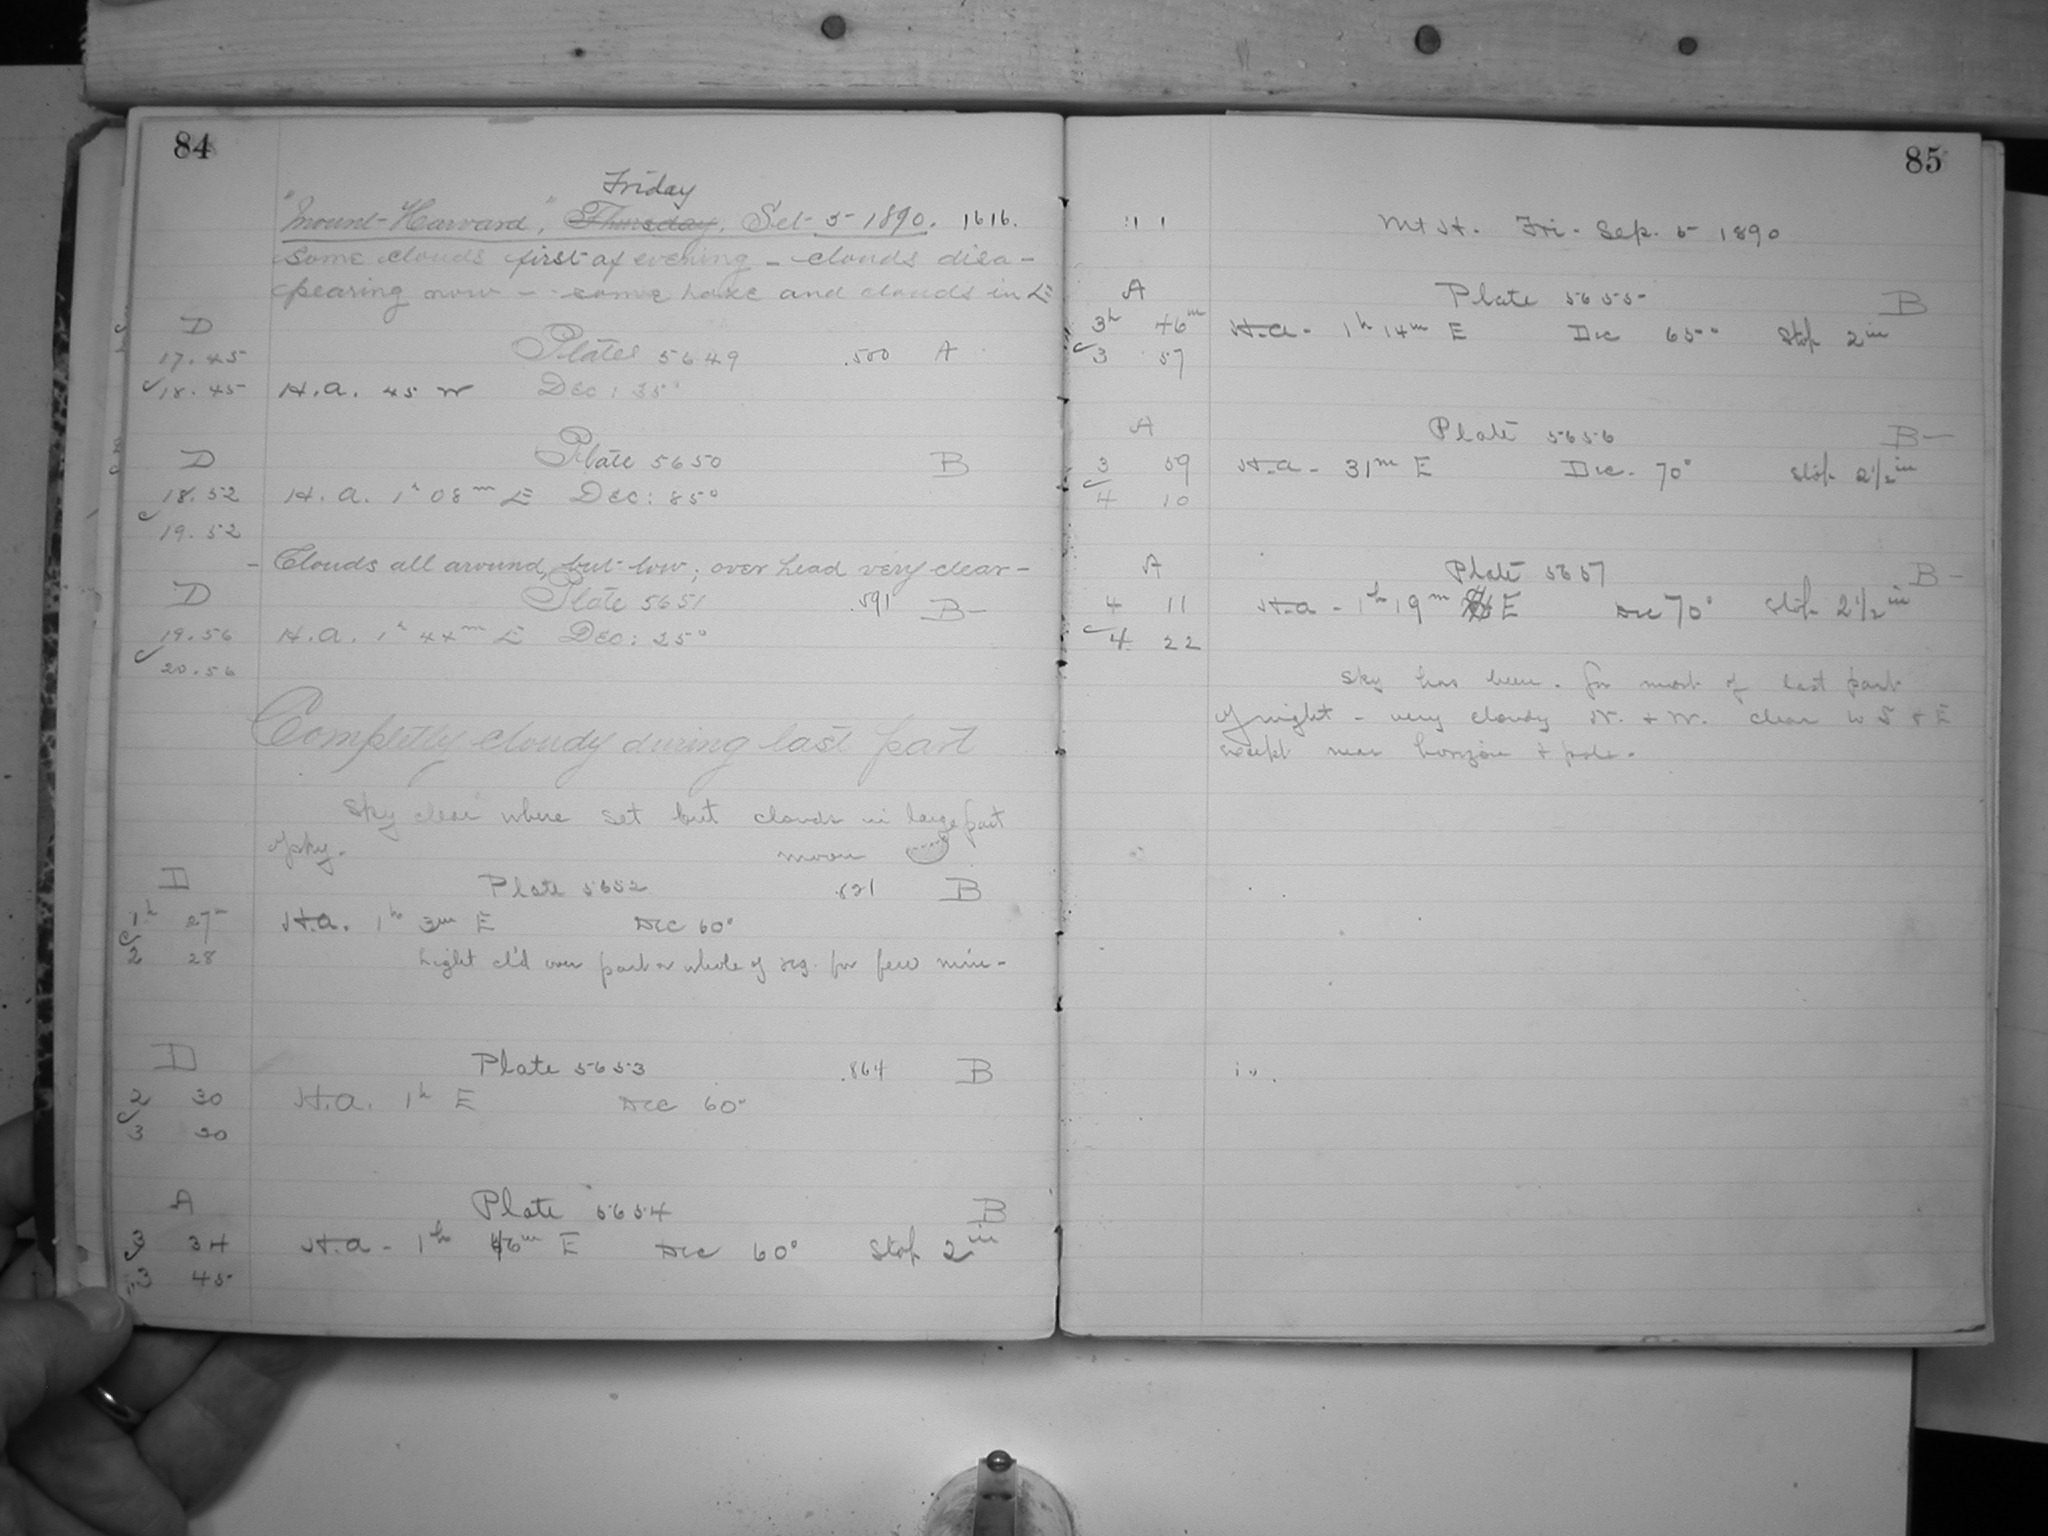 84
Friday
"Mount-Harvard", Thursday, Set. 5-1890. 1616.
Some clouds first of evening - clouds disa-
pearing now - some haze and clouds in E
D
17.45 Plates 5649 .500 A
18.45 H.a. 45 W Dec: 35°
D Plate 5650 B
18.52 H.a. 1h 08m E Dec: 85°
19.52
- Clouds all around, but low; over head very clear -
D Plate 5651 .591 B-
19.56 H.a. 1h 44m E Dec: 25°
20.56
Completly cloudy during last part
Sky clear where set but clouds in large part
of sky. moon
D Plate 5652 .821 B
1h 27m H.a. 1h 3m E Dec 60°
2 28 Light cl'd over part or whole of reg. for few min-
D Plate 5653 .864 B
2 30 H.a. 1h E Dec 60°
3 30
A Plate 5654 B
3 34 H.a - 1h 6m E Dec 60° Stop 2in
3 45
85
Mt H. Fri. Sep. 5 1890
A Plate 5655 B
3h 46m H.a - 1h 14m E Dec 65° Stop 2in
3 57
A Plate 5656 B-
3 59 H.a - 31m E Dec. 70° Stop 2 1/2in
4 10
A Plate 5657 B-
4 11 H.a - 1h 19m E Dec 70° Stop 2 1/2in
4 22
Sky has been. for most of last part
of night - very cloudy N. + W. clear to S + E
except near horizon + pole.